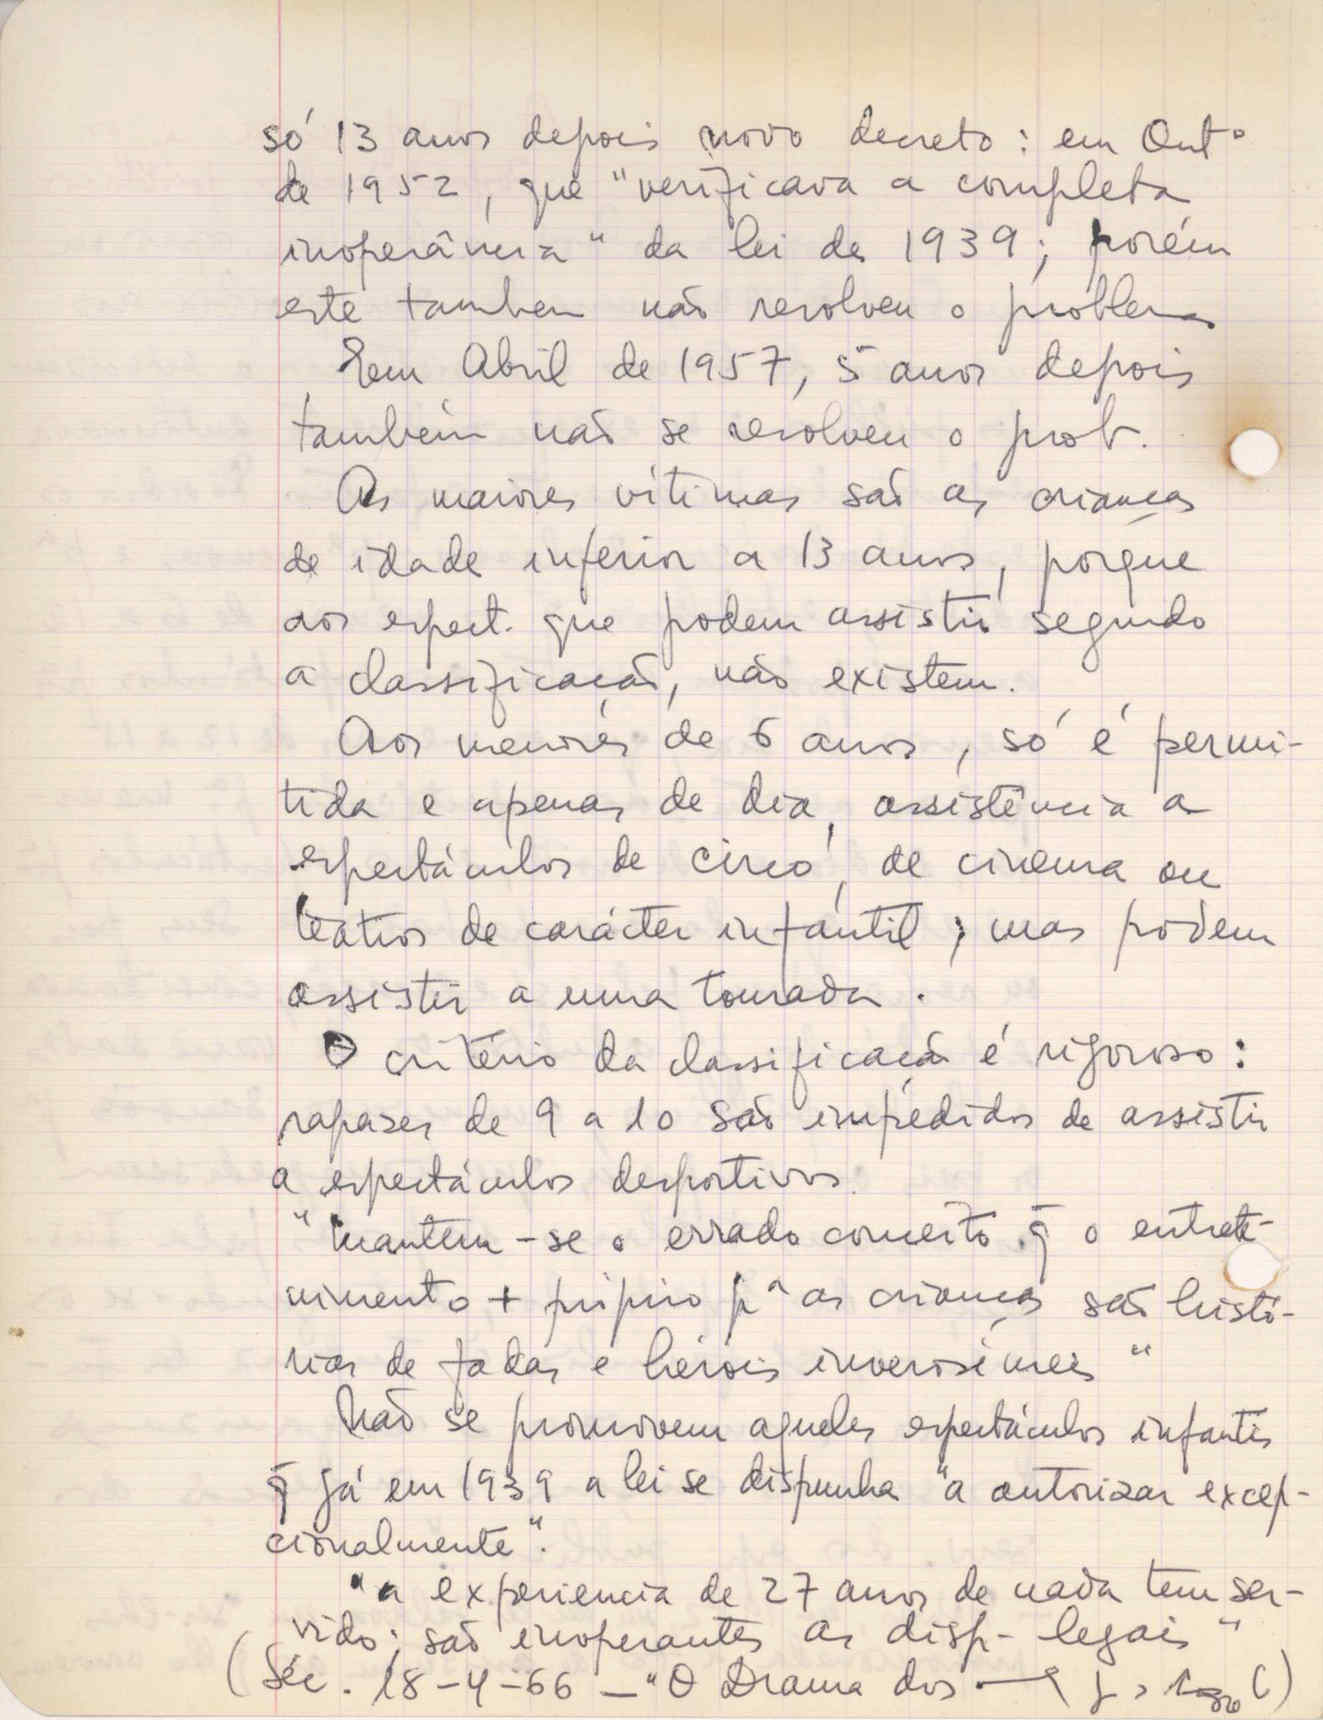 só 13 anos depois novo decreto: em Out.º
de 1952, que "verificava a completa
inoperância" da lei de 1939; porém
este tambem não resolveu o problema
Em Abril de 1957, 5 anos depois
também não se resolveu o prob.
As maiores vítimas são as crianças
de idade inferior a 13 anos, porque
aos espect. que podem assistir segundo
a classificação, não existem.
Aos menores de 6 anos, só é permi-
tida e apenas de dia, assistência a
espectáculos de circo, de cinema ou
teatros de carácter infantil; mas podem
assistir a uma tourada.
O critério da classificação é rigoroso:
rapazes de 9 a 10 são impedidos de assistir
a espectáculos desportivos.
"Mantem-se o errado conceito q̄ o entrete-
nimento + próprio pª as crianças são histó-
rias de fadas e heróis inverosímeis"
Não se promovem aqueles espectáculos infantis
q̄ já em 1939 a lei se dispunha "a autorizar excep-
cionalmente".
"a experiencia de 27 anos de nada tem ser-
vido; são inoperantes as disp- legais"
(Séc. 18-4-66 — "O Drama dos